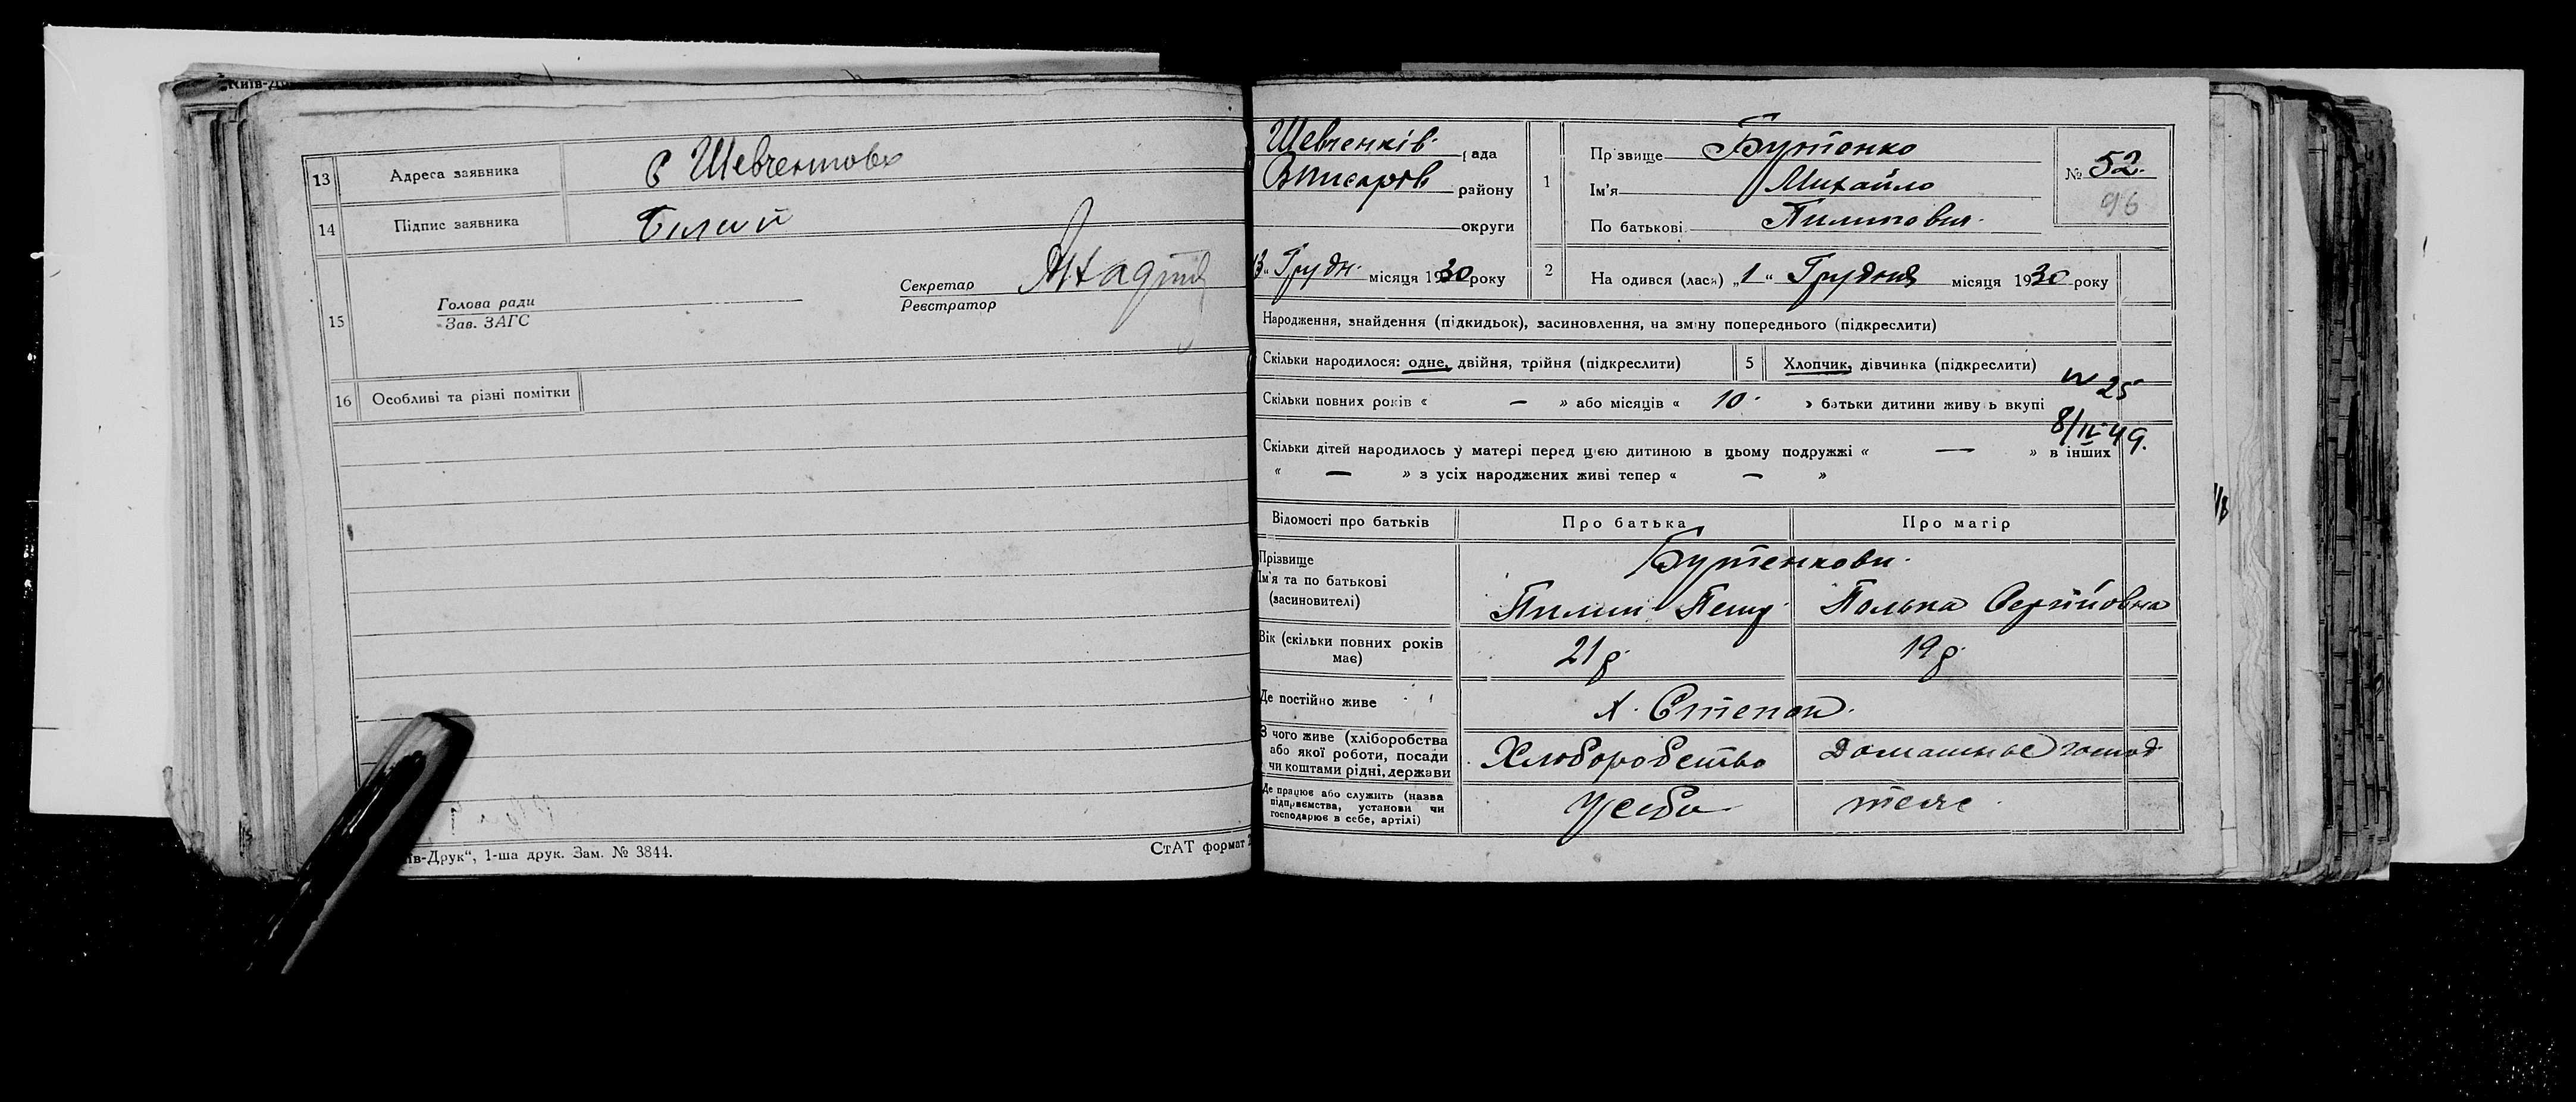 13 Адреса заявника с Шевченкове
14 Підпис заявника Білий
15 Голова ради
Зав. ЗАГС
Секретар
Реєстратор
16 Особливі та різні помітки
їв-Друк“, 1-ша друк. Зам. № 3844.
СтАТ формат
Шевченків. рада
району
округи
13 „ Грудн. місяця 1930 року
1 Прізвище Бутенко
Ім'я Михайло
По батькові Пилипович.
№ 52.
96
2 На одився (лася) „1“ Грудня місяця 1930 року
Народження, знайдення (підкидьок), засиновлення, на зміну попереднього (підкреслити)
Скільки народилося: одне, двійня, трійня (підкреслити) 5 Хлопчик, дівчинка (підкреслити)
Скільки повних років « – » або місяців « 10 » батьки дитини живуть вкупі
25
8/IV-49.
Скільки дітей народилось у матері перед цією дитиною в цьому подружжі « — » в інших
« – » з усіх народжених живі тепер « – »
Відомості про батьків Про батька Про матір
Прізвище Бутенкови.
Ім'я та по батькові
(засиновителі) Пилип Полька Сергіїовна
Вік (скільки повних років має) 21 р. 19 р.
Де постійно живе х. Степан.
З чого живе (хліборобства
або якої роботи, посади
чи коштами рідні, держави Хлюборобство Домашнє господ
Де працює або служить (назва
підприємства, установи чи
господарює в себе, артілі) У себе теж